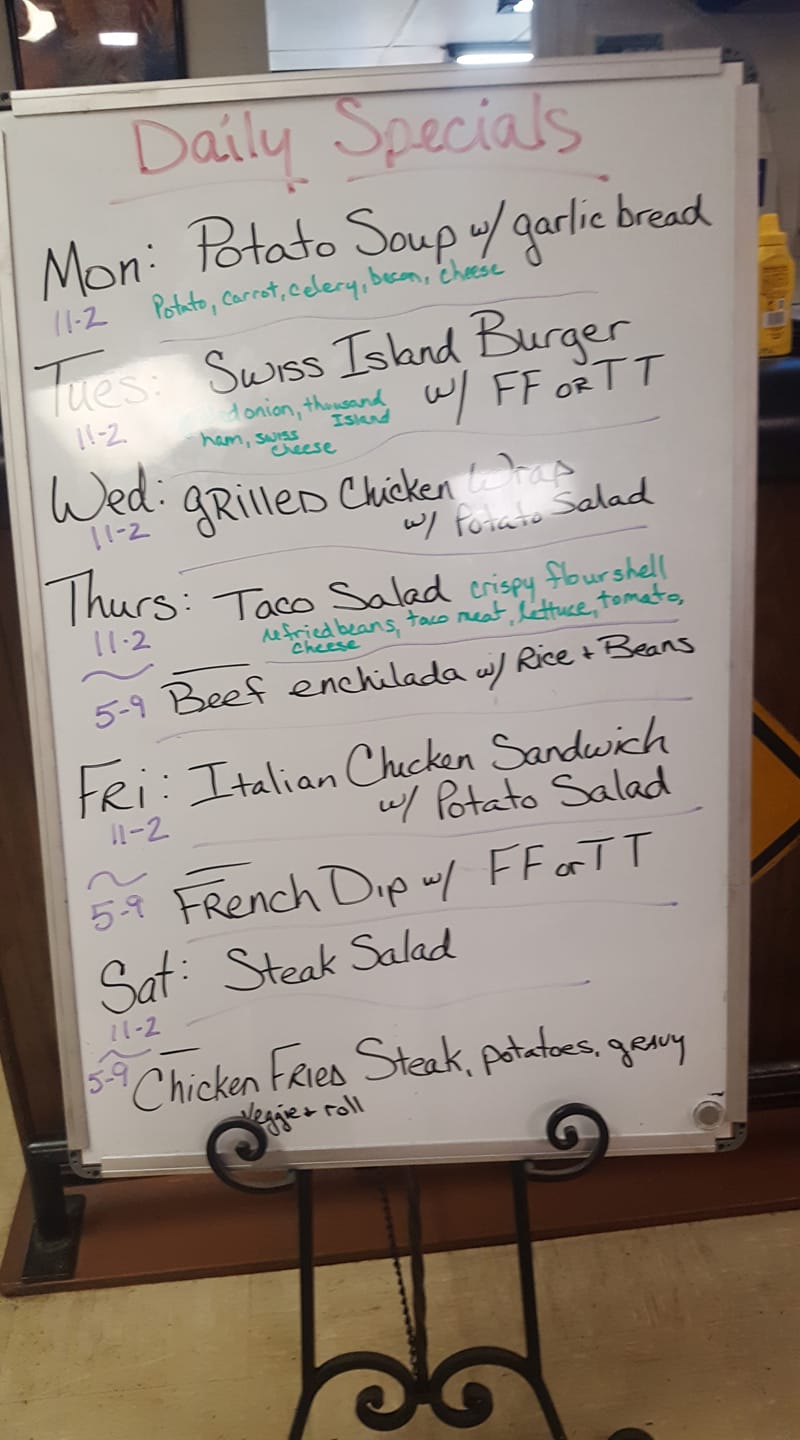 Daily Specials
Mon: Potato Soup w/ garlic bread
11-2 Potato, carrot, celery, bacon, cheese
Tues: Swiss Island Burger
onion, thousand Island w/ FF or TT
11-2 ham, swiss cheese
Wed: Grilled Chicken Wrap
11-2 w/ Potato Salad
Thurs: Taco Salad crispy flour shell
11-2 refried beans, taco meat, lettuce, tomato,
cheese
5-9 Beef enchilada w/ Rice + Beans
Fri: Italian Chicken Sandwich
w/ Potato Salad
11-2
5-9 French Dip w/ FF or TT
Sat: Steak Salad
11-2
5-9 Chicken Fried Steak, potatoes, gravy
veggie + roll